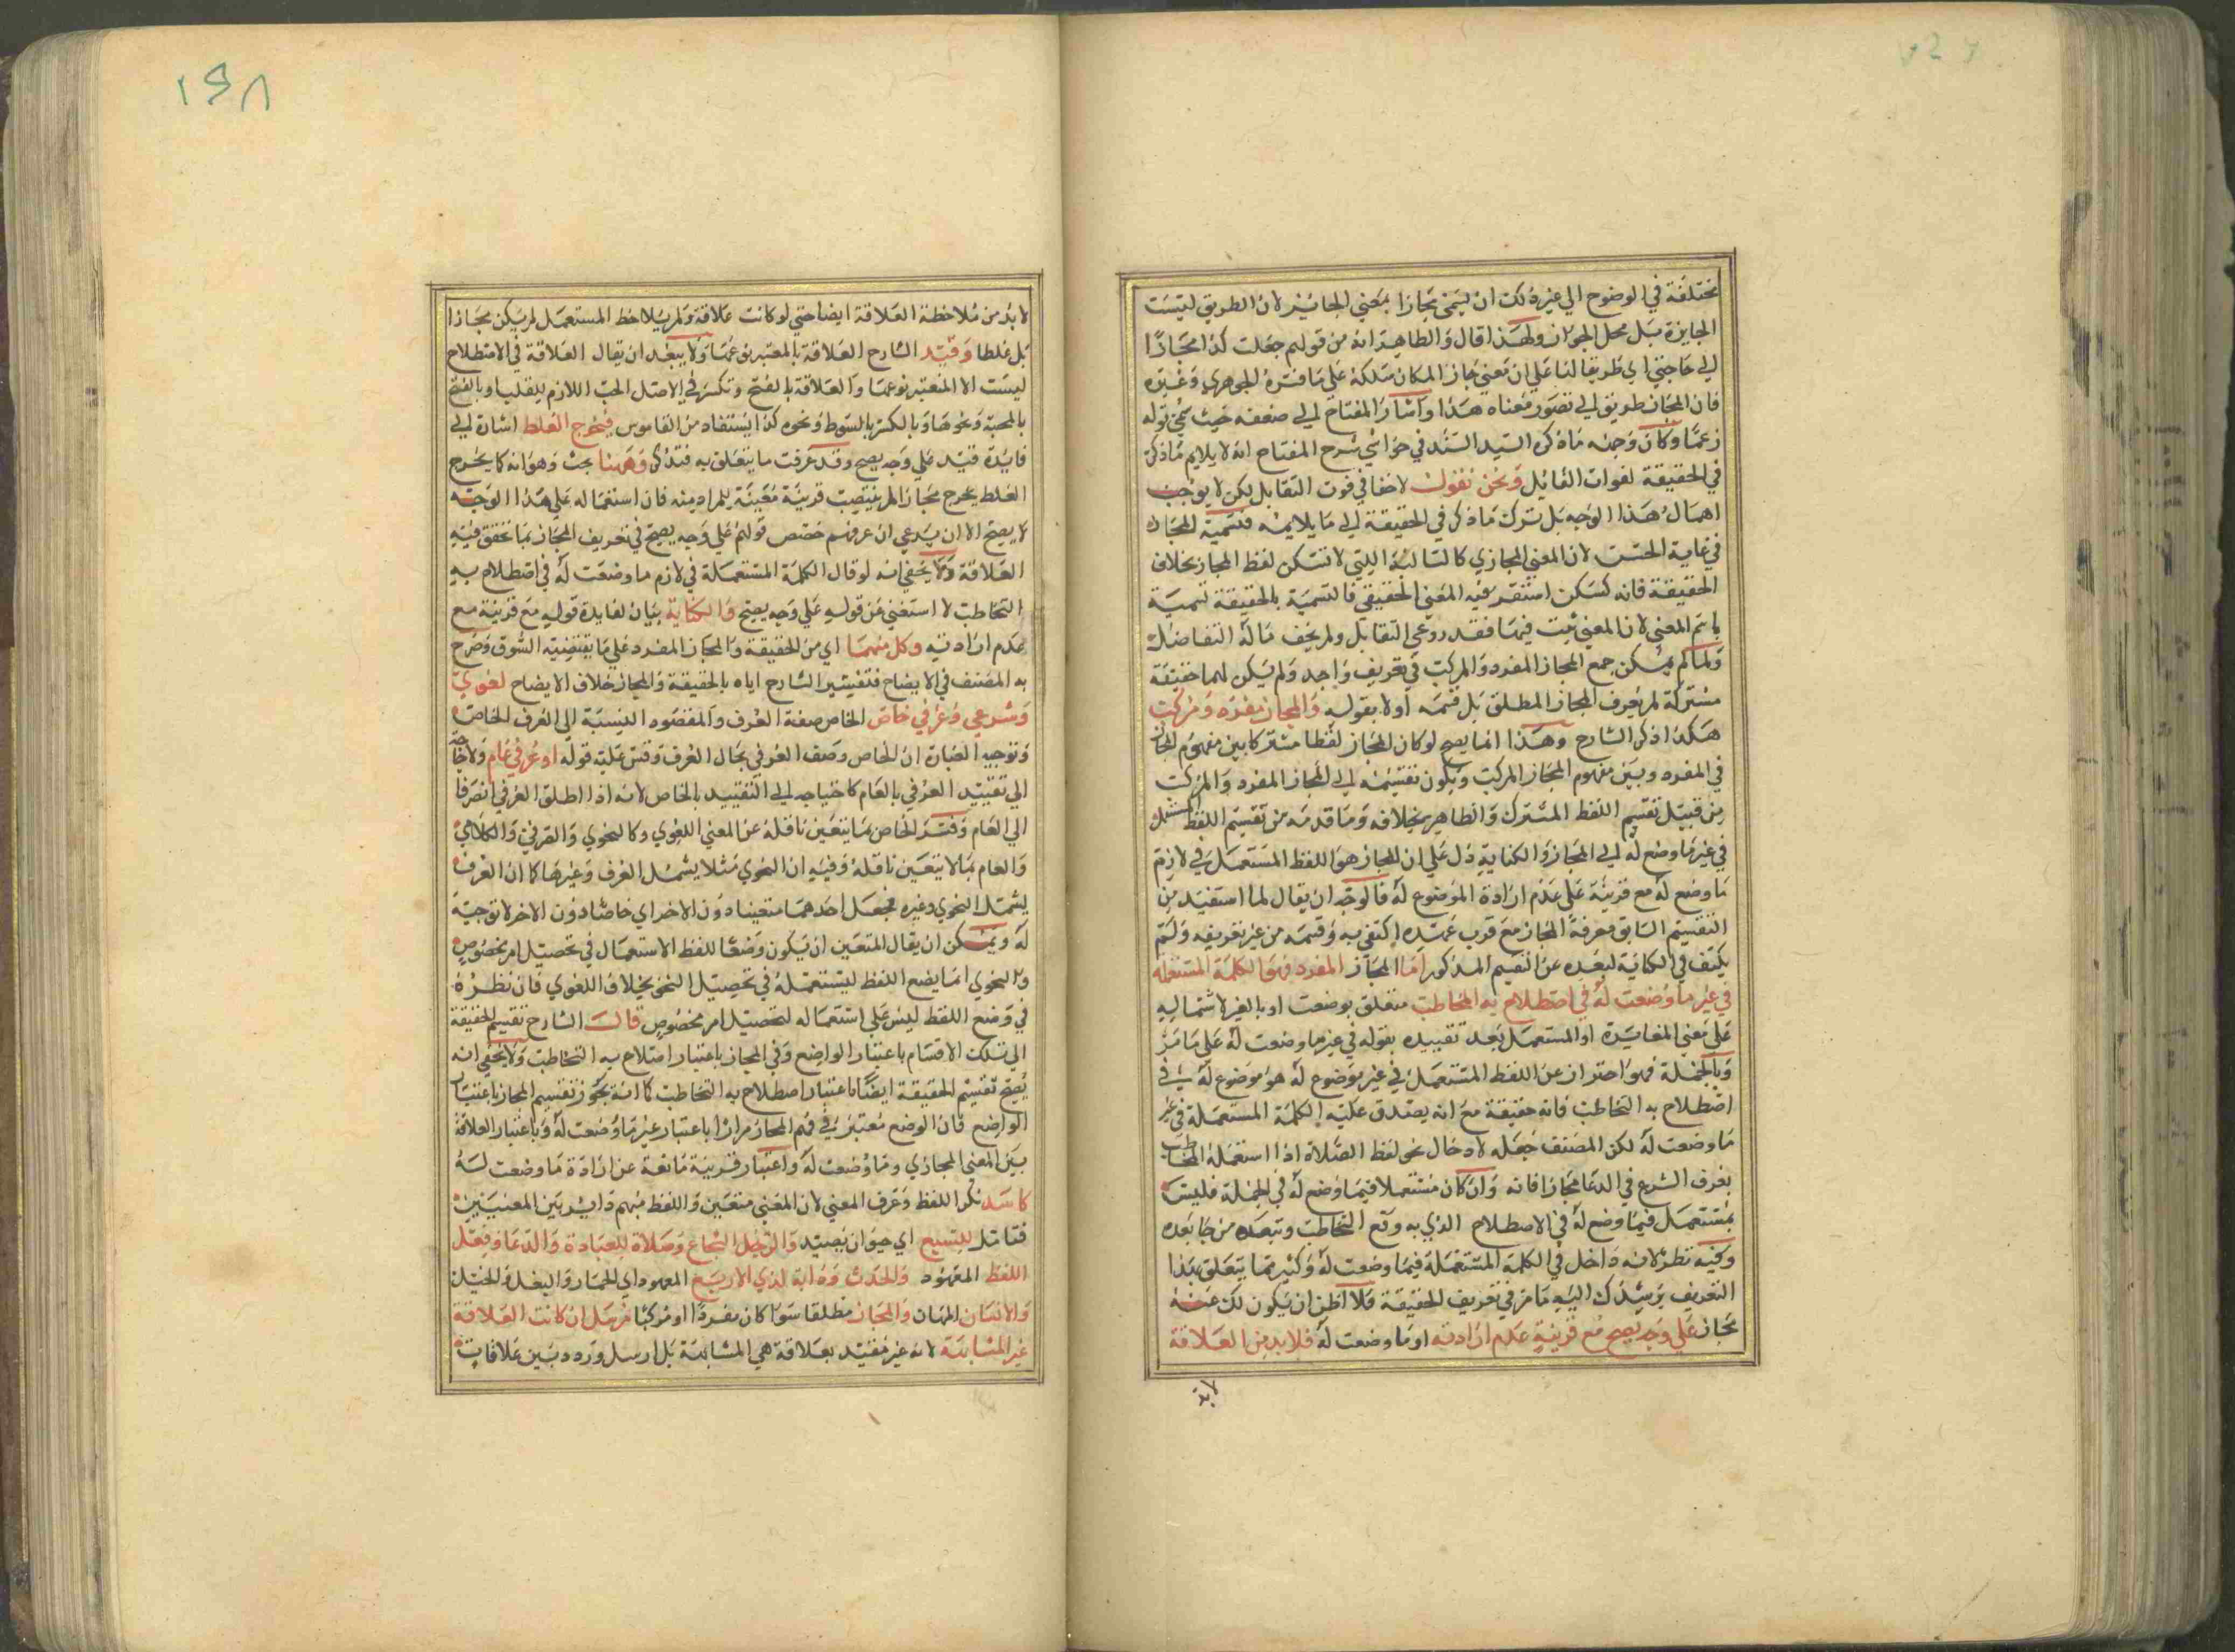 مختلفة في الوضوح الي غير ذلك ان ليسمي مجازا بمعني الجائيز لان الطريق ليست
الجايزة بل محل الجواز ولهذا قال والظاهر انه من قولهم جعلت كذا مجازا
الي حاجتي اي طريقا لها علي ان معني جاز المكان سلكه علي ما فسره الجوهري وغيره
فان المجاز طريق الي تصور معناه هذا واشار المفتاح الي ضعفه حيث قوله
زعما وكان وجهه ما ذكره السيد السند في حواشي شرح المفتاح انه لا يلايم ما ذكر
في الحقيقة لفوات التقابل ونحن نقول لا خفا في فوت التقابل لكن لا يوجب
اهمال هذا الوجه بل ترك ما ذكر في الحقيقة الي ما يلايمه فتسمية المجاز
في غاية الحسن لان المعني المجازي كالسابلة اللتي لا تسكن لفظ المجاز بخلاف
الحقيقة فانه كسكن استقر فيه المعني الحقيقي فالتسمية بالحقيقة تسمية
باسم المعني لان المعني ثبت فيها فقد روعي التقابل ولم يخف ما له التفاضل
ولما لم يمكن جمع المجاز المفرد والمركب في تعريف واحد ولم يكن لهما حقيقة
مشتركة لم يعرف المجاز المطلق بل قسمه اولا بقوله والمجاز مفرد ومركب
هكذا ذكر الشارح وهذا انما يصح لو كان المجاز لفظا مشتركا بين مفهوم المجاز
في المفرد وبين مفهوم المجاز المركب ويكون تقسيمه الي المجاز المفرد والمركب
من قبيل تقسيم اللفظ المشترك والظاهر بخلافه وما قدمه من تقسيم اللفظ المستعمل
في غير ما وضع له الي المجاز والكناية دل علي ان المجاز هو اللفظ المستعمل في لازم
ما وضع له مع قرينة علي عدم ارادة الموضوع له فالوجه ان يقال لما استفيد من
التقسيم السابق معرفة المجاز مع قرب عهده اكتفي به وقسمه من غير تعريفه ولم
يكتف في الكناية لبعده عن التقسيم المذكور اما المجاز المفرد فهو الكلمة المستعملة
في غير ما وضعت له في اصطلاح به التخاطب متعلق بوضعت او بالغير لاشتماله
علي معني المغايرة او المستعمل بعد تقييده بقوله في غير ما وضعت له علي ما مر
وبالجملة فهو احتراز عن اللفظ المستعمل في غير موضوع له هو موضوع له في
اصطلاح به التخاطب فانه حقيقة مع انه يصدق عليه الكلمة المستعملة في غير
ما وضعت له لكن المصنف جعله لادخال نحو لفظ الصلاة اذا استعمله المخاطب
بعرف الشرع في الدعا مجازا فانه وان كان مستعملا فيما وضع له في الجملة فليس
بمستعمل فيما وضع له في الاصطلاح الذي به وقع التخاطب وتبعه من جا بعده
وفيه نظر لانه داخل في الكلمة المستعملة فيما وضعت له وكثير مما يتعلق بهذا
التعريف يرشدك اليه ما مر في تعريف الحقيقة فلا اظن ان يكون لك عنه
مجاز علي وجه يصح مع قرينة عدم ارادته او ما وضعت له فلا بد من العلاقة
لا بد
١٤٨
لا بد من ملاحظة العلاقة ايضا حتي لو كانت علاقة ولم يلاحظ المستعمل لم يكن مجازا
بل غلطا وقيد الشارح العلاقة بالمعتبر نوعها ولا يبعد ان يقال العلاقة في الاصطلاح
ليست الا المعتبر نوعها والعلاقة بالفتح وتكسر في الاصل الحب اللازم للقلب او بالفتح
بالمحبة ونحوها وبالكسر بالسوط ونحوه كذا يستفاد من القاموس فخرج الغلط اشارة الي
فايدة قيد علي وجه يصح وقد عرفت ما يتعلق به فتذكر وههنا بحث وهو انه كما يخرج
الغلط يخرج مجاز لم ينتصب قرينة معينة للمراد منه فان استعماله علي هذا الوجه
لا يصح الا ان يدعي ان عرفهم خصص قولهم علي وجه يصح في تعريف المجاز بما تحقق فيه
العلاقة ولا يخفي انه لو قال الكلمة المستعملة في لازم ما وضعت له في اصطلاح به
التخاطب لاستغني عن قوله علي وجه يصح والكناية بيان لفايدة قوله مع قرينة مع
عدم ارادته وكل منهما اي من الحقيقة والمجاز المفرد علي ما يقتضيه السوق وصرح
به المصنف في الايضاح فتفسير الشارح اياه بالحقيقة والمجاز خلاف الايضاح لغوي
وشرعي وعرفي خاص الخاص صفة العرف والمقصود النسبة الي العرف الخاص
وتوجيه العبارة ان الخاص وصف العرفي بحال العرف وقس عليه قوله او عرفي عام ولا حاجة
الي تقييد العرفي بالعام كاحتياجه الي التقييد بالخاص لانه اذا اطلق العرفي انصرف
الي العام وفسر الخاص بما يتعين ناقله عن المعني اللغوي وكالنحوي والصرفي والكلامي
والعام بما لا يتعين ناقله وفيه ان النحوي مثلا يشمل العرف وغيرها كما ان العرف
يشمل النحوي وغيره فجعل احدهما متعينا دون الاخر اي خاصا دون الاخر لا توجيه
له ويمكن ان يقال المتعين ان يكون وضعا للفظ الاستعمال في تحصيل امر مخصوص
والنحوي انما يضع اللفظ ليستعمله في تحصيل النحو بخلاف اللغوي فان نظره
في وضع اللفظ ليس علي استعماله لتحصيل امر مخصوص قال الشارح تقسيم الحقيقة
الي تلك الاقسام باعتبار الواضع وفي المجاز باعتبار اصطلاح به التخاطب ولا يخفي انه
يصح تقسيم الحقيقة ايضا باعتبار اصطلاح به التخاطب كما انه يجوز تقسيم المجاز باعتبار
الواضع فان الوضع معتبر في فهم المجاز مرارا باعتبار غير ما وضعت له وباعتبار العلاقة
بين المعني المجازي وما وضعت له واعتبار قرينة مانعة عن ارادة ما وضعت له
كاسد نكر اللفظ وعرف المعني لان المعني متعين واللفظ مبهم داير بين المعنيين
فتامل للسبع اي حيوان يصيد والرجل الشجاع وصلاة للعبادة والدعا وفعل
اللفظ المعهود والحدث ودابة لذي الاربع المعهود اي الحمار والبغل والخيل
والانسان المهان والمجاز مطلقا سوا كان مفردا او مركبا مرسل ان كانت العلاقة
غير المشابهة لانه غير مقيد بعلاقة هي المشابهة بل ارسل وردد بين علاقات